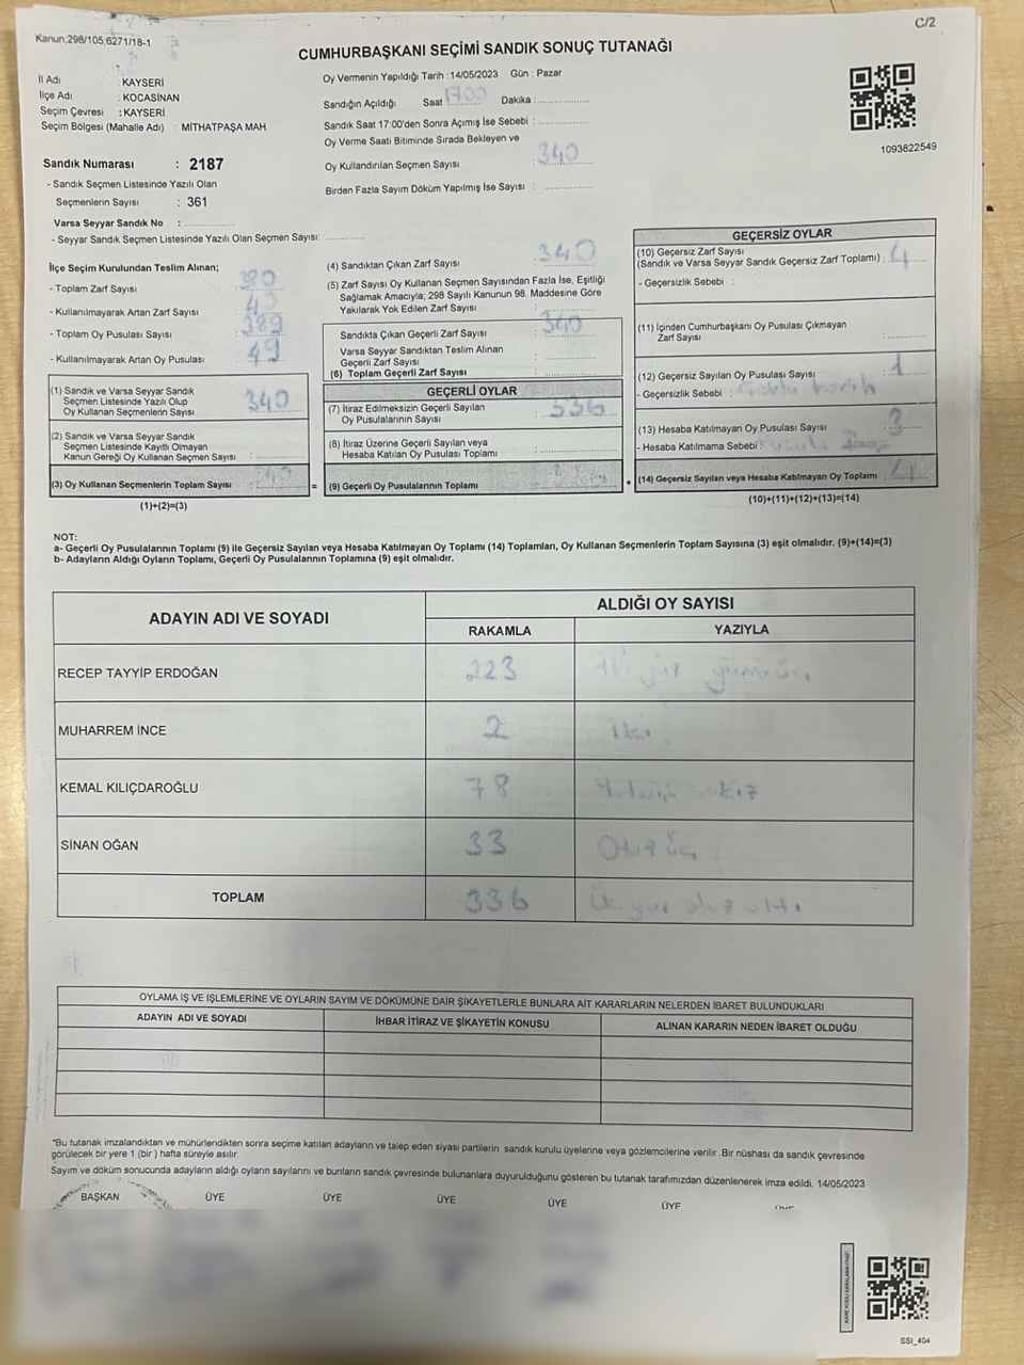 C/2
Kanun,298/105,6271/18-1
CUMHURBAŞKANI SEÇİMİ SANDIK SONUÇ TUTANAĞI
İl Adı : KAYSERİ
İlçe Adı : KOCASİNAN
Seçim Çevresi : KAYSERİ
Seçim Bölgesi (Mahalle Adı) MİTHATPAŞA MAH
Sandık Numarası : 2187
- Sandık Seçmen Listesinde Yazılı Olan
Seçmenlerin Sayısı : 361
Varsa Seyyar Sandık No :
- Seyyar Sandık Seçmen Listesinde Yazılı Olan Seçmen Sayısı:
Oy Vermenin Yapıldığı Tarih : 14/05/2023 Gün : Pazar
Sandığın Açıldığı Saat 1700 Dakika :
Sandık Saat 17:00'den Sonra Açımış İse Sebebi :
Oy Verme Saati Bitiminde Sırada Bekleyen ve
Oy Kullandırılan Seçmen Sayısı : 340
Birden Fazla Sayım Döküm Yapılmış İse Sayısı :
1093822549
İlçe Seçim Kurulundan Teslim Alınan;
- Toplam Zarf Sayısı :
- Kullanılmayarak Artan Zarf Sayısı :
- Toplam Oy Pusulası Sayısı : 389
- Kullanılmayarak Artan Oy Pusulası : 49
(1) Sandık ve Varsa Seyyar Sandık
Seçmen Listesinde Yazılı Olup
Oy Kullanan Seçmenlerin Sayısı : 340
(2) Sandık ve Varsa Seyyar Sandık
Seçmen Listesinde Kayıtlı Olmayan
Kanun Gereği Oy Kullanan Seçmen Sayısı :
(3) Oy Kullanan Seçmenlerin Toplam Sayısı : 340
(1)+(2)=(3)
(4) Sandıktan Çıkan Zarf Sayısı : 340
(5) Zarf Sayısı Oy Kullanan Seçmen Sayısından Fazla İse, Eşitliği
Sağlamak Amacıyla; 298 Sayılı Kanunun 98. Maddesine Göre
Yakılarak Yok Edilen Zarf Sayısı :
Sandıkta Çıkan Geçerli Zarf Sayısı : 340
Varsa Seyyar Sandıktan Teslim Alınan
Geçerli Zarf Sayısı :
(6) Toplam Geçerli Zarf Sayısı :
GEÇERLİ OYLAR
(7) İtiraz Edilmeksizin Geçerli Sayılan
Oy Pusulalarının Sayısı : 336
(8) İtiraz Üzerine Geçerli Sayılan veya
Hesaba Katılan Oy Pusulası Toplamı :
= (9) Geçerli Oy Pusulalarının Toplamı :
GEÇERSİZ OYLAR
(10) Geçersiz Zarf Sayısı
(Sandık ve Varsa Seyyar Sandık Geçersiz Zarf Toplamı) : 4
- Geçersizlik Sebebi :
(11) İçinden Cumhurbaşkanı Oy Pusulası Çıkmayan
Zarf Sayısı :
(12) Geçersiz Sayılan Oy Pusulası Sayısı : 1
- Geçersizlik Sebebi :
(13) Hesaba Katılmayan Oy Pusulası Sayısı : 3
- Hesaba Katılmama Sebebi :
+ (14) Geçersiz Sayılan veya Hesaba Katılmayan Oy Toplamı : 4
(10)+(11)+(12)+(13)=(14)
NOT:
a- Geçerli Oy Pusulalarının Toplamı (9) ile Geçersiz Sayılan veya Hesaba Katılmayan Oy Toplamı (14) Toplamları, Oy Kullanan Seçmenlerin Toplam Sayısına (3) eşit olmalıdır. (9)+(14)=(3)
b- Adayların Aldığı Oyların Toplamı, Geçerli Oy Pusulalarının Toplamına (9) eşit olmalıdır.
ADAYIN ADI VE SOYADI ALDIĞI OY SAYISI
RAKAMLA YAZIYLA
RECEP TAYYİP ERDOĞAN 223 İki yüz yirmi üç
MUHARREM İNCE 2 İki
KEMAL KILIÇDAROĞLU 78
SİNAN OĞAN 33 Otuz üç
TOPLAM 336 Üç yüz otuz altı
OYLAMA İŞ VE İŞLEMLERİNE VE OYLARIN SAYIM VE DÖKÜMÜNE DAİR ŞİKAYETLERLE BUNLARA AİT KARARLARIN NELERDEN İBARET BULUNDUKLARI
ADAYIN ADI VE SOYADI İHBAR İTİRAZ VE ŞİKAYETİN KONUSU ALINAN KARARIN NEDEN İBARET OLDUĞU
"Bu tutanak imzalandıktan ve mühürlendikten sonra seçime katılan adayların ve talep eden siyasi partilerin sandık kurulu üyelerine veya gözlemcilerine verilir. Bir nüshası da sandık çevresinde
görülecek bir yere 1 (bir) hafta süreyle asılır.
Sayım ve döküm sonucunda adayların aldığı oyların sayılarını ve bunların sandık çevresinde bulunanlara duyurulduğunu gösteren bu tutanak tarafımızdan düzenlenerek imza edildi. 14/05/2023
BAŞKAN ÜYE ÜYE ÜYE ÜYE ÜYE
SSI_404